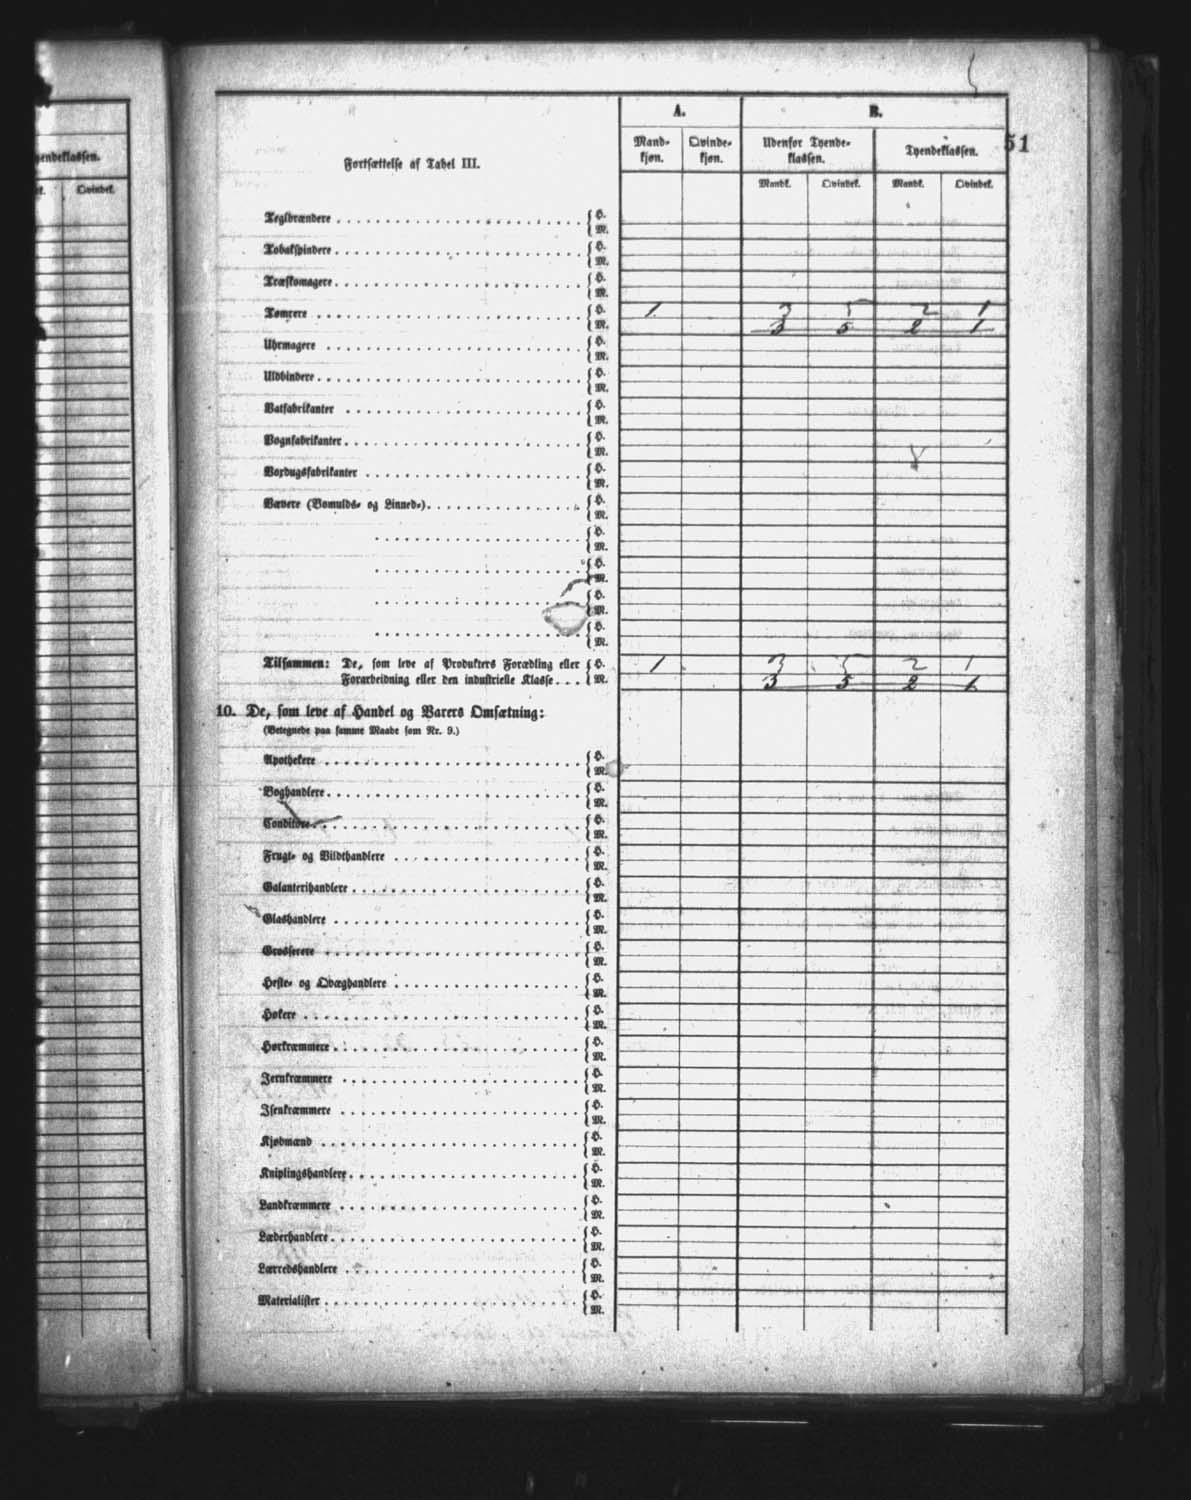 yendeklassen.
k.
Qvindek.
A.
B.
51
Fortsættelse af Tabel III.
Mand-
kjøn.
Qvinde-
kjøn.
Udenfor Tyende-
klassen.
Tyendeklassen.
Mandk.
Qvindek.
Mandk.
Qvindek.
Teglbrændere { H.
{ M.
Tobakspindere { H.
{ M.
Træskomagere { H.
{ M.
Tømrere { H. 1 3 5 2 1
{ M. 3 5 2 1
Uhrmagere { H.
{ M.
Uldbindere { H.
{ M.
Vatfabrikanter { H.
{ M.
Vognfabrikanter { H.
{ M.
Voxdugsfabrikanter { H.
{ M.
Vævere (Bomulds- og Linned-) { H.
{ M.
{ H.
{ M.
{ H.
{ M.
{ H.
{ M.
{ H.
{ M.
Tilsammen: De, som leve af Produkters Forædling eller { H. 1 3 5 2 1
Forarbeidning eller den industrielle Klasse { M. 3 5 2 1
10. De, som leve af Handel og Varers Omsætning:
(Betegnede paa samme Maade som Nr. 9.)
Apothekere { H.
{ M.
Boghandlere { H.
{ M.
Conditore { H.
{ M.
Frugt- og Vildthandlere { H.
{ M.
Galanterihandlere { H.
{ M.
Glashandlere { H.
{ M.
Grosserere { H.
{ M.
Heste- og Qvæghandlere { H.
{ M.
Høkere { H.
{ M.
Hørkræmmere { H.
{ M.
Jernkræmmere { H.
{ M.
Isenkræmmere { H.
{ M.
Kjøbmænd { H.
{ M.
Kniplingshandlere { H.
{ M.
Landkræmmere { H.
{ M.
Læderhandlere { H.
{ M.
Lærredshandlere { H.
{ M.
Materialister { H.
{ M.